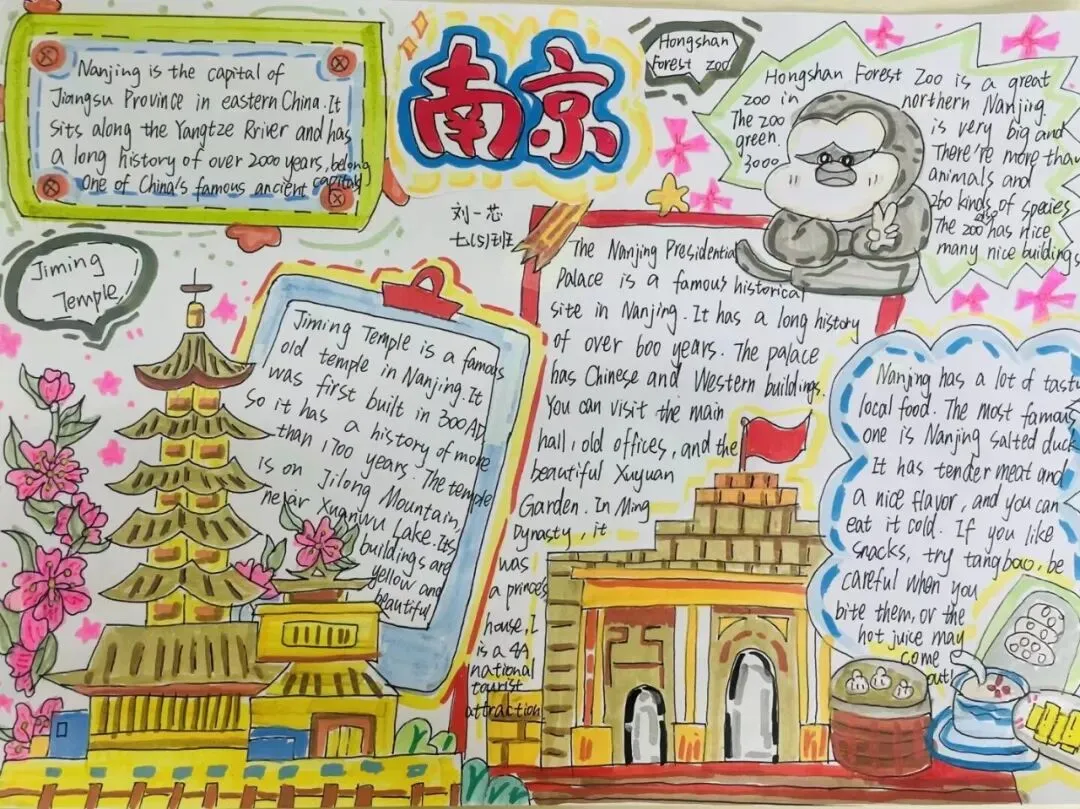 Nanjing is the capital of
Jiangsu Province in eastern China. It
sits along the Yangtze Rriver and has
a long history of over 2000 years, belong
One of China's famous ancient capitals
南京
刘一芯
七(5)班
Hongshan
Forest zoo
Hongshan Forest Zoo is a great
zoo in northern Nanjing.
The zoo is very big and
green. There're more than
3000 animals and
260 kinds of species
The zoo also has nice
many nice buildings
Jiming
Temple
Jiming Temple is a famous
old temple in Nanjing. It
was first built in 300 AD
So it has a history of more
than 1700 years. The temple
is on Jilong Mountain,
near Xuanwu Lake. Its
buildings are
yellow and
beautiful
The Nanjing Presidential
Palace is a famous historical
site in Nanjing. It has a long history
of over 600 years. The palace
has Chinese and Western buildings.
You can visit the main
hall, old offices, and the
beautiful Xuyuan
Garden. In Ming
Dynasty, it
was
a princes
house, I
is a 4A
national
tourist
attraction.
Nanjing has a lot of tasty
local food. The most famous
one is Nanjing salted duck
It has tender meat and
a nice flavor, and you can
eat it cold. If you like
snacks, try tangbao, be
careful when you
bite them, or the
hot juice may
come
out!